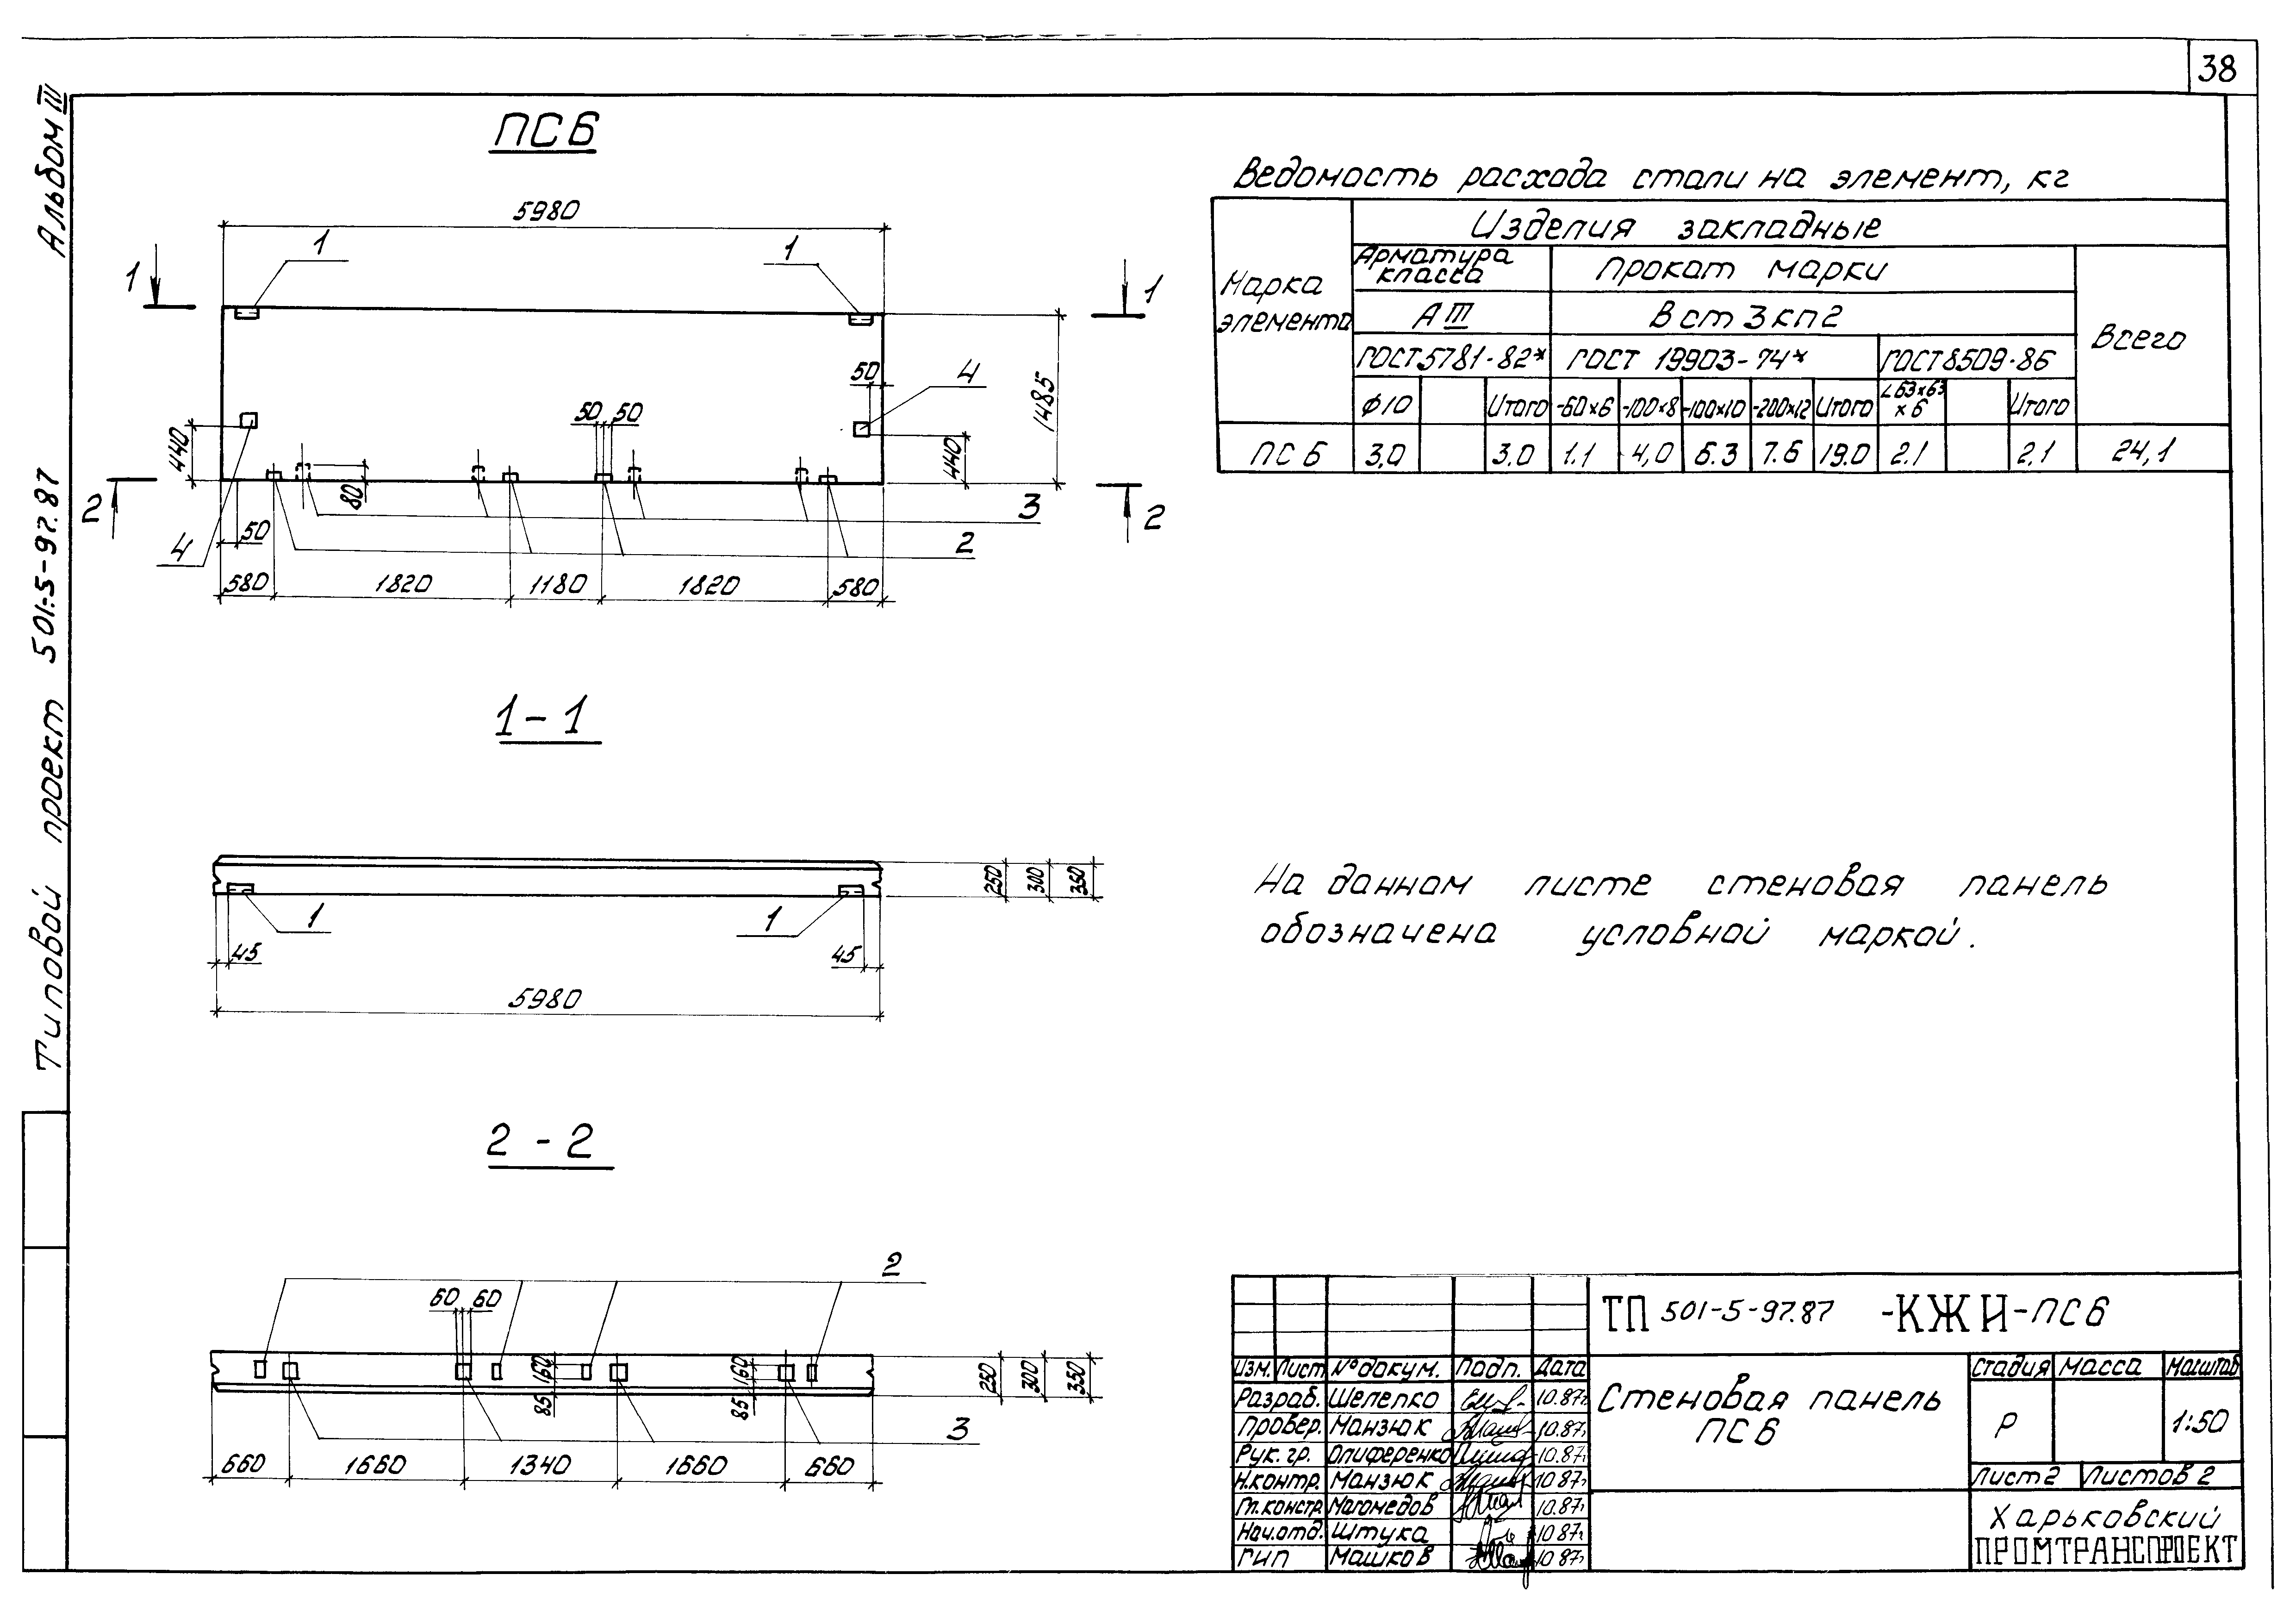 38
Альбом III
Типовой проект 501-5-97.87
ПС6
5980
1 1
1 1
50 4
1485
440 50 50 440
80
2 3 2
4 50 2
580 1820 1180 1820 580
1-1
250 300 350
1 1
45 45
5980
2-2
2
60 60
160 160
85 85
250 300 350
3
660 1660 1340 1660 660
Ведомость расхода стали на элемент, кг
Марка элемента
Изделия закладные
Арматура класса
Прокат марки
Всего
А III
Вст3кп2
ГОСТ 5781-82* ГОСТ 19903-74* ГОСТ 8509-86
Ø10 Итого -60×6 -100×8 -100×10 -200×12 Итого ∟63×63×6 Итого
ПС6 3,0 3.0 1.1 4,0 6.3 7.6 19.0 2.1 2,1 24,1
На данном листе стеновая панель
обозначена условной маркой.
ТП 501-5-97.87 -КЖИ-ПС6
Изм. Лист № докум. Подп. Дата
Разраб. Шелепко 10.87г
Провер. Манзюк 10.87г
Рук. гр. Олиференко 10.87г
Н.контр. Манзюк 10.87г
Гл.констр. Магомедов 10.87г
Нач.отд. Штука 10 87г
ГИП Машков 10 87г
Стеновая панель
ПС6
Стадия Масса Масштаб
Р 1:50
Лист 2 Листов 2
Харьковский
ПРОМТРАНСПРОЕКТ